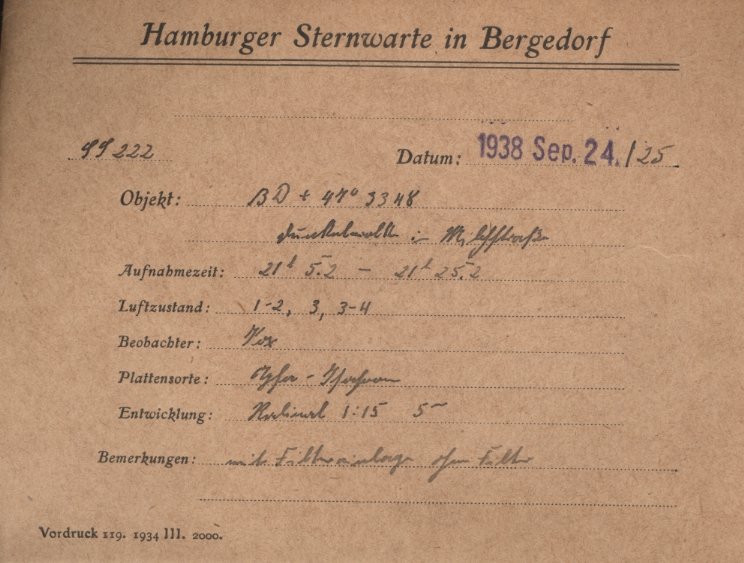 Hamburger Sternwarte in Bergedorf
SS 222
Datum: 1938 Sep. 24. /25
Objekt: BD + 47° 3348
Dunkelwolke in Milchstraße
Aufnahmezeit: 21h 5.2 – 21h 25.2
Luftzustand: 1-2, 3, 3-4
Beobachter: Wex
Plattensorte: Agfa - Isochrom
Entwicklung: Rodinal 1:15 5m
Bemerkungen: mit Filtereinlage ohne Filter
Vordruck 119. 1934 III. 2000.